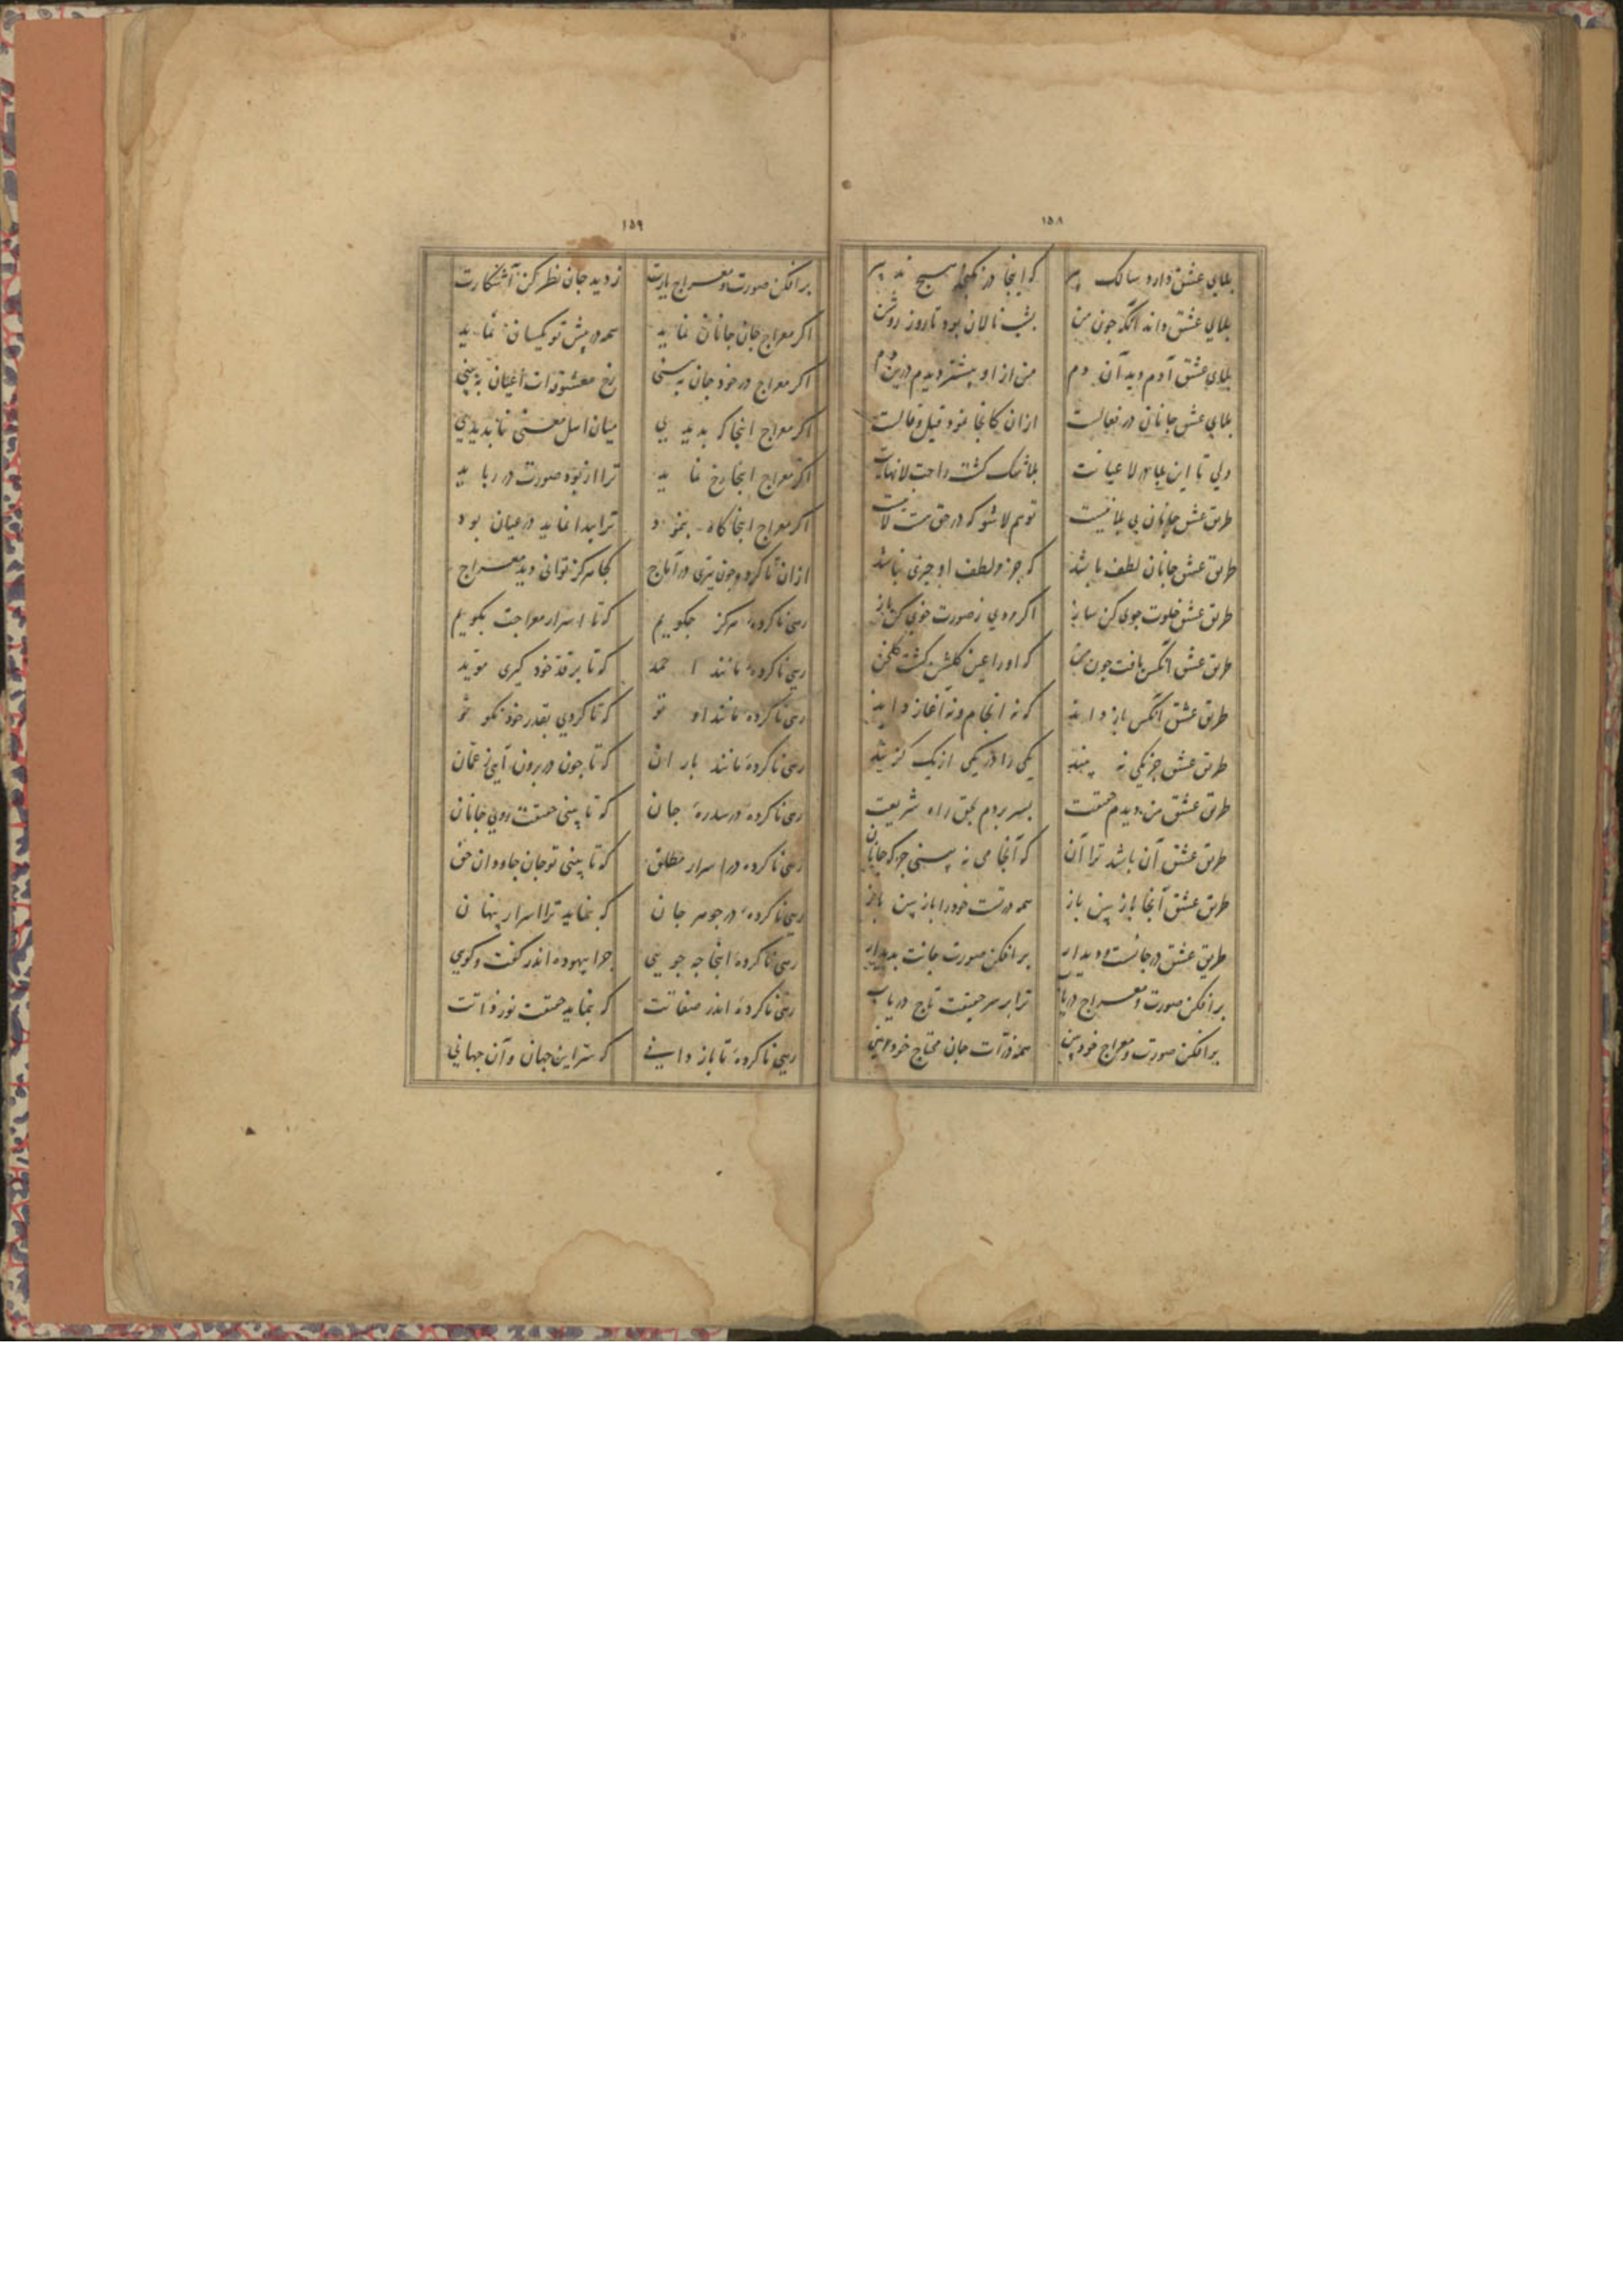 ١٥٨
بلای عشق دارد سالک پیر که اینجا در نکنجد هیچ تدبیر
بلای عشق داند آنکه چون من بشب نالان بود تا روز روشن
بلای عشق آدم دید آن دم من از او بیشتر دیدم درین دم
بلای عشق جانان در فعالست ازان کانجا نمود قیل و قالست
ولی تا این بلا لا عیانت بلا شک گشت راحت لانهایت
طریق عشق جانان بی بلا نیست تو هم لا شو که در حق هست لا نیست
طریق عشق جانان لطف باشد که جز او لطف او چیزی نباشد
طریق عشق خلوت جوی کن ساز اگر مردی ز صورت خوی کن باز
طریق عشق آنکس یافت چون من که او را عین گلشن گشت گلخن
طریق عشق آنکس باز داند که نه انجام و نه آغاز داند
طریق عشق جز یکی نه بیند یکی را در یکی از یک گزیند
طریق عشق من دیدم حقیقت بسر بردم بحق راه شریعت
طریق عشق آن باشد ترا آن که آنجا می نه بینی جز که جانان
طریق عشق آنجا باز بین باز همه درتست خود را باز بین باز
طریق عشق در جانست و دیدار بر افکن صورت جانت بدیدار
بر افکن صورت و معراج دریاب ترا بر سر حقیقت تاج دریاب
بر افکن صورت و معراج خود بین همه ذرات جان محتاج خود بین
١٥٩
بر افکن صورت و معراج یارت ز دید جان نظر کن آشکارت
اکر معراج جان جانان نماید همه در پیش تو یکسان نماید
اکر معراج در خود جان به بینی رخ معشوق ذات اعیان به بینی
اکر معراج اینجا که بدیدی میان اهل معنی ناپدیدی
اکر معراج اینجا رخ نماید ترا از بود صورت در رباید
اکر معراج اینجا کاه بنمود ترا پیدا نماید در عیان بود
ازان نا کرده چون تیری در آماج کجا هرکز توانی دید معراج
رهی نا کرده هرکز چکویم که تا اسرار معراجت بکویم
رهی نا کرده مانند احمد که تا بر قد خود کیری موید
رهی نا کرده مانند او تو که تا کردی بقدر خود نکو تو
رهی نا کرده مانند باران که تا چون در برون آیی ز عمان
رهی نا کرده در سدره جان که تا بینی حقیقت روی جانان
رهی نا کرده در اسرار مطلق که تا بینی تو جان جاودان حق
رهی نا کرده در جوهر جان که بنماید ترا اسرار پنهان
رهی نا کرده اینجا چه جویی چرا بیهوده اندر کفت و کویی
رهی نا کرده اندر صفاتت که بنماید حقیقت نور ذاتت
رهی نا کرده تا باز دانی که سر این جهان و آن جهانی